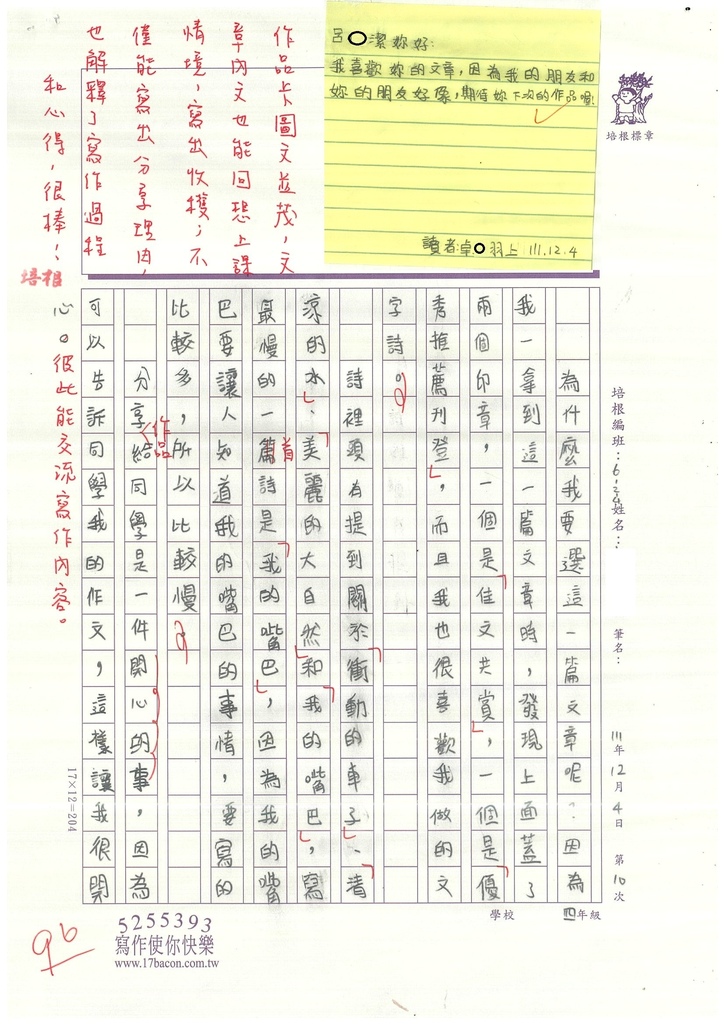 呂〇潔妳好:
我喜歡妳的文章,因為我的朋友和
妳的朋友好像,期待妳下次的作品喔!
讀者:卓〇羽上 111.12.4
培根標章
作品卡圖文並茂,文
章內文也能回想上課
情境,寫出收穫;不
僅能寫出分享理由,
也解釋了寫作過程
和心得,很棒!
培根
培根編班:6-3
姓名::
筆名:
111年12月4日 第10次
為什麼我要選這一篇文章呢?因為
我一拿到這一篇文章時,發現上面蓋了
兩個印章,一個是佳文共賞,一個是優
秀推薦刊登,而且我也很喜歡我做的文
字詩。
詩裡頭有提到關於衝動的車子、清
涼的水、美麗的大自然和我的嘴巴,寫
最慢的一篇詩是我的嘴巴,因為我的嘴
首
巴要讓人知道我的嘴巴的事情,要寫的
比較多,所以比較慢。
分享給同學是一件開心的事,因為
作品
可以告訴同學我的作文,這樣讓我很開
心。彼此能交流寫作內容。
17×12=204
96
5255393
寫作使你快樂
www.17bacon.com.tw
學校 四年級